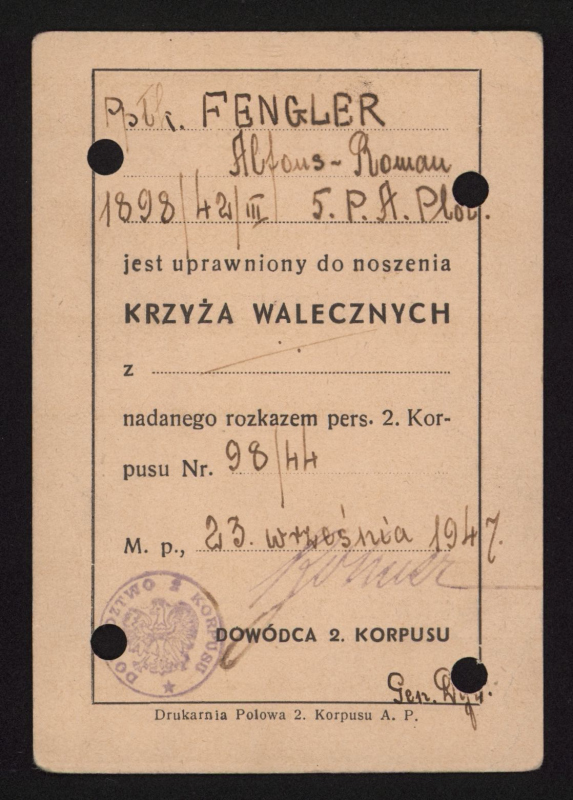 Ppłk. FENGLER
Alfons-Roman
1898/42/III 5. P. A. Plot.
jest uprawniony do noszenia
KRZYŻA WALECZNYCH
z
nadanego rozkazem pers. 2. Kor-
pusu Nr. 98/44
M. p., 23. września 1947.
DOWÓDZTWO 2 KORPUSU
DOWÓDCA 2. KORPUSU
Gen. Dyw.
Drukarnia Polowa 2. Korpusu A. P.